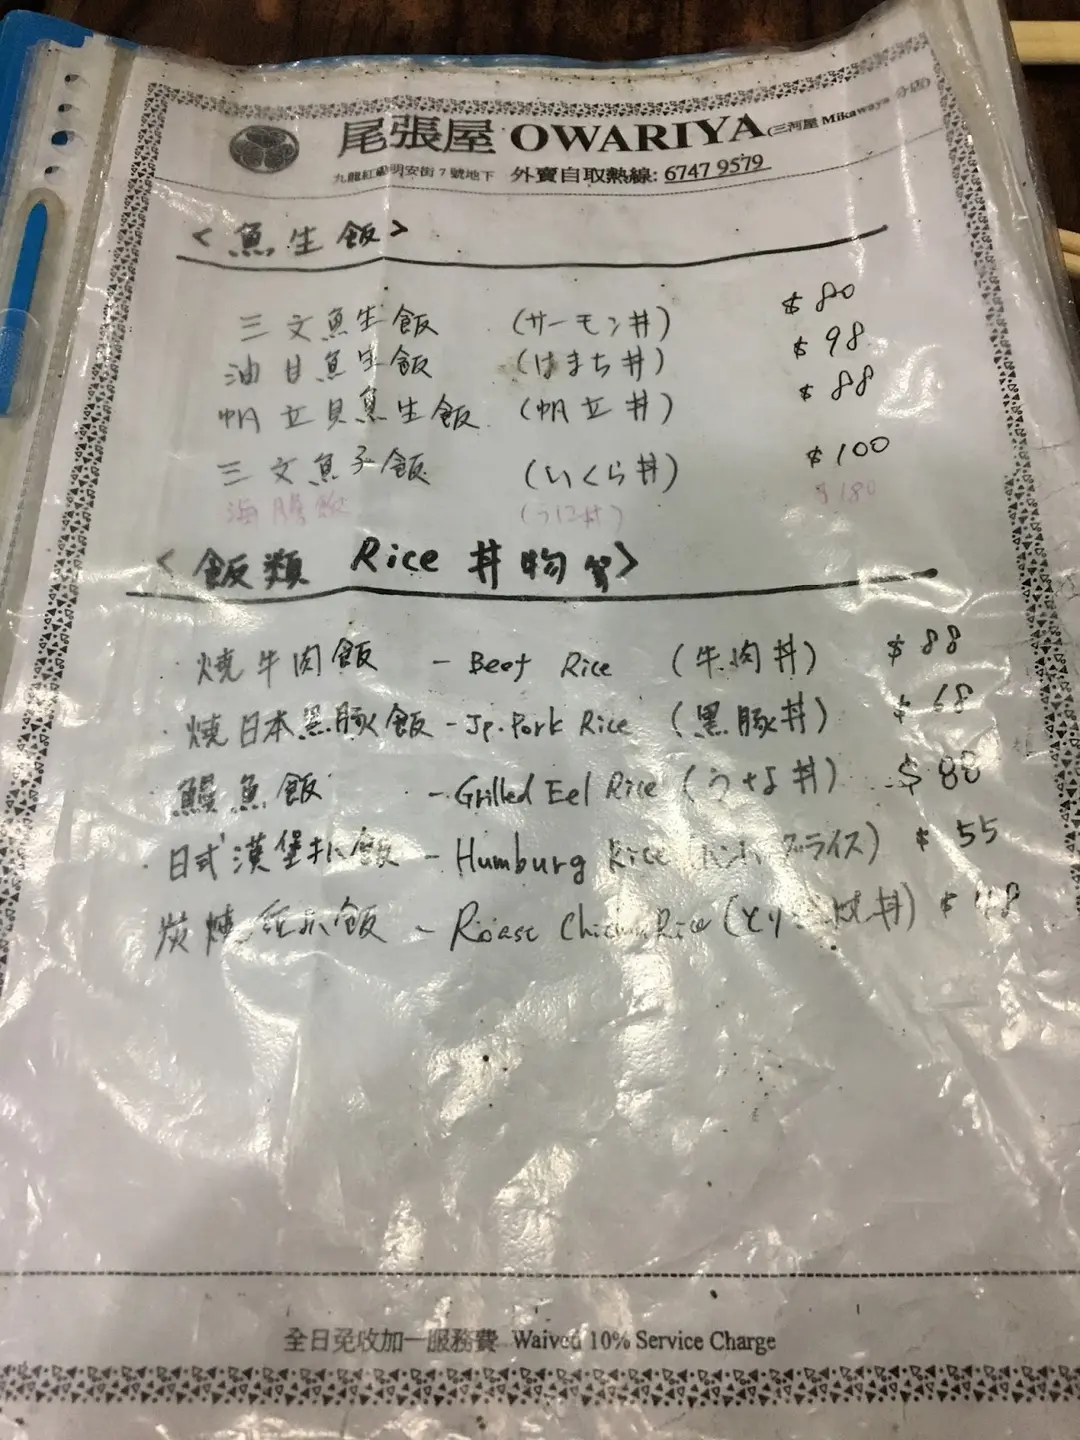 尾張屋 OWARIYA (三河屋 Mikawaya 分店)
九龍紅磡明安街 7 號地下 外賣自取熱線: 6747 9579
<魚生飯>
三文魚生飯 (サーモン丼) $80
油甘魚生飯 (はまち丼) $98
帆立貝魚生飯 (帆立丼) $88
三文魚子飯 (いくら丼) $100
海膽飯 (うに丼) $180
<飯類 Rice 丼物>
燒牛肉飯 - Beef Rice (牛肉丼) $88
燒日本黑豚飯 - Jp. Pork Rice (黒豚丼) $68
鰻魚飯 - Grilled Eel Rice (うなよ丼) $88
日式漢堡扒飯 - Humburg Rice グライス) $55
炭燒 飯 - Roast Chicken Rice (とり 丼) $48
全日免收加一服務費 Waived 10% Service Charge